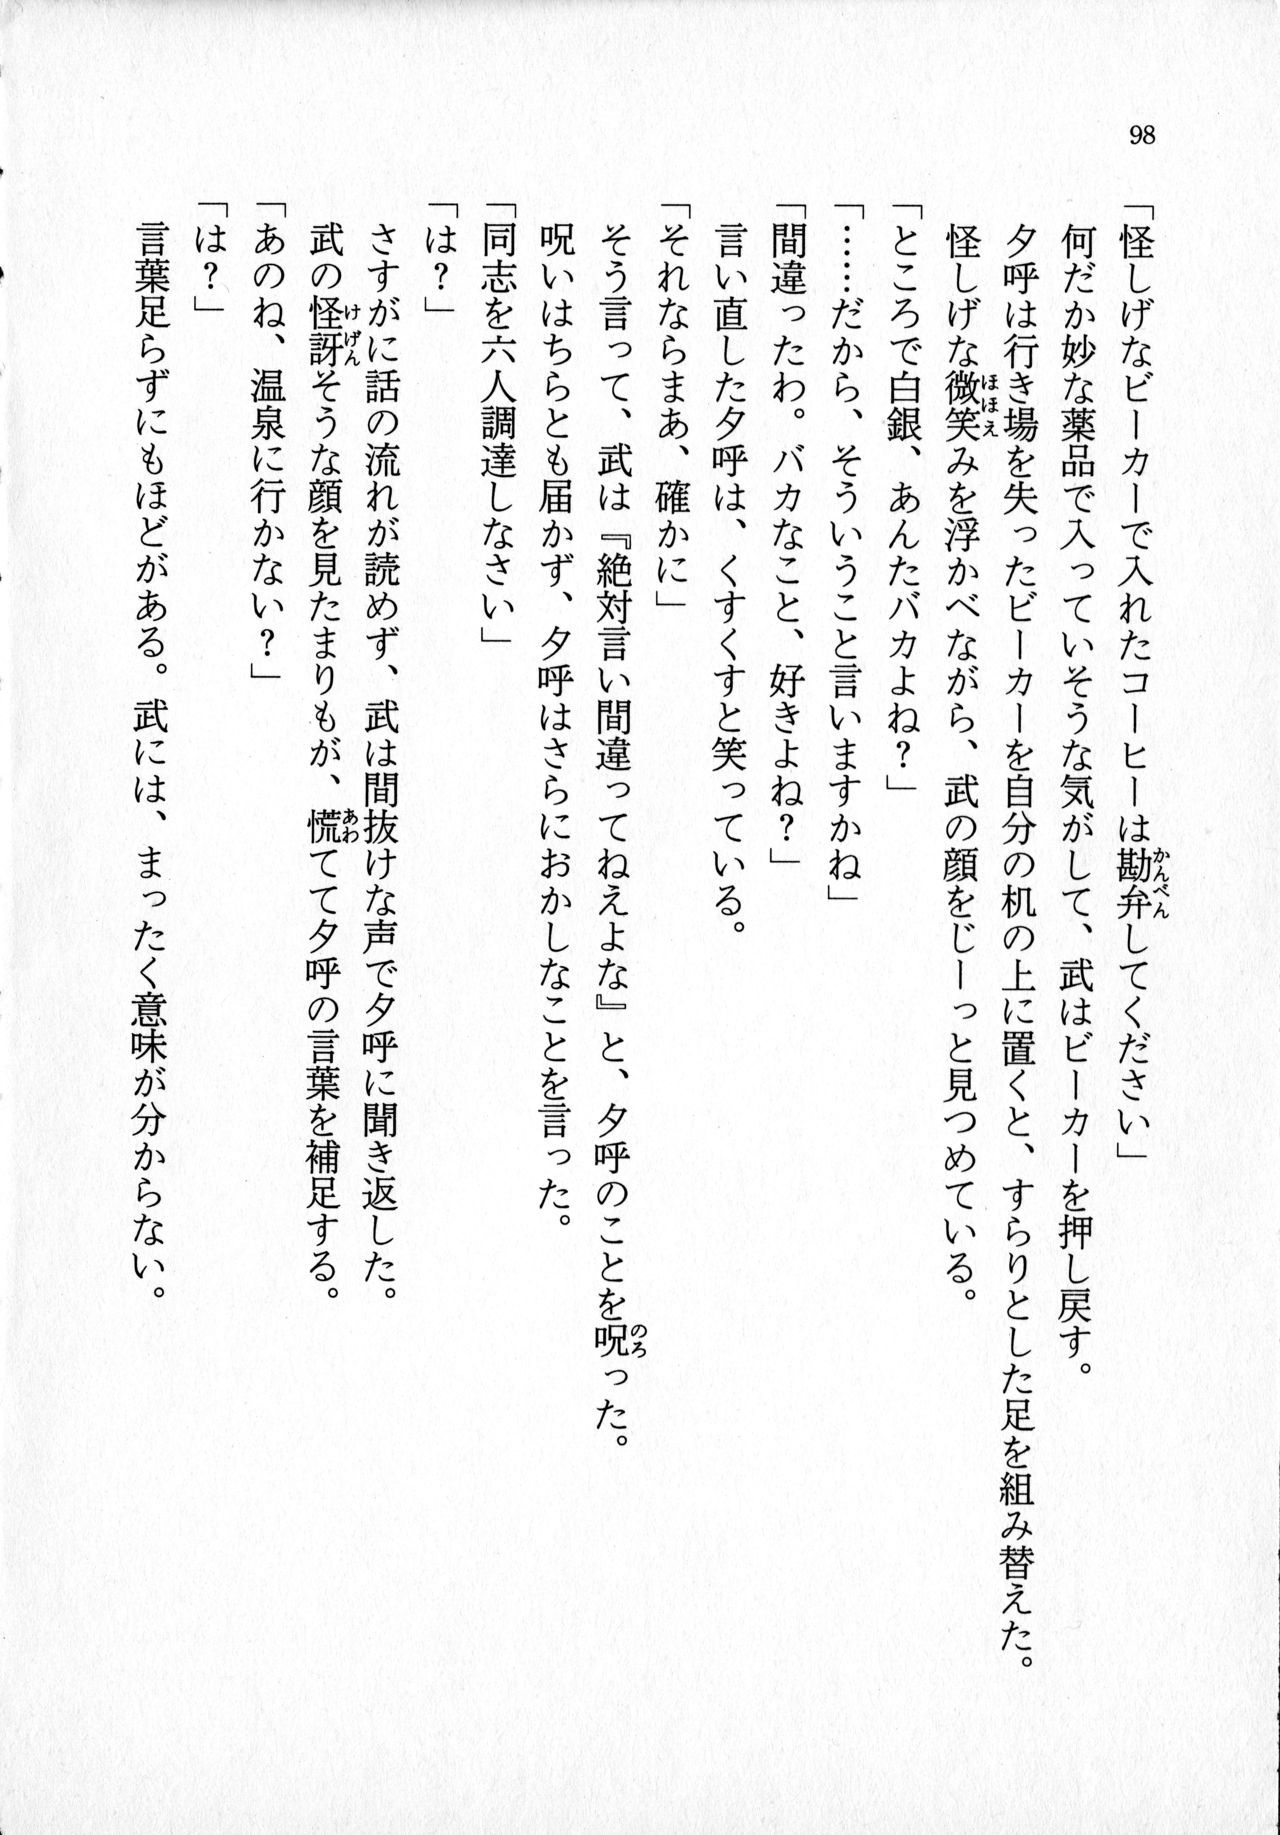 98
「怪しげなビーカーで入れたコーヒーは勘弁してください」
何だか妙な薬品で入っていそうな気がして、武はビーカーを押し戻す。
夕呼は行き場を失ったビーカーを自分の机の上に置くと、すらりとした足を組み替えた。
怪しげな微笑みを浮かべながら、武の顔をじーっと見つめている。
「ところで白銀、あんたバカよね？」
「……だから、そういうこと言いますかね」
「間違ったわ。バカなこと、好きよね？」
言い直した夕呼は、くすくすと笑っている。
「それならまあ、確かに」
そう言って、武は『絶対言い間違ってねえよな』と、夕呼のことを呪った。
呪いはちらとも届かず、夕呼はさらにおかしなことを言った。
「同志を六人調達しなさい」
「は？」
さすがに話の流れが読めず、武は間抜けな声で夕呼に聞き返した。
武の怪訝そうな顔を見たまりもが、慌てて夕呼の言葉を補足する。
「あのね、温泉に行かない？」
「は？」
言葉足らずにもほどがある。武には、まったく意味が分からない。